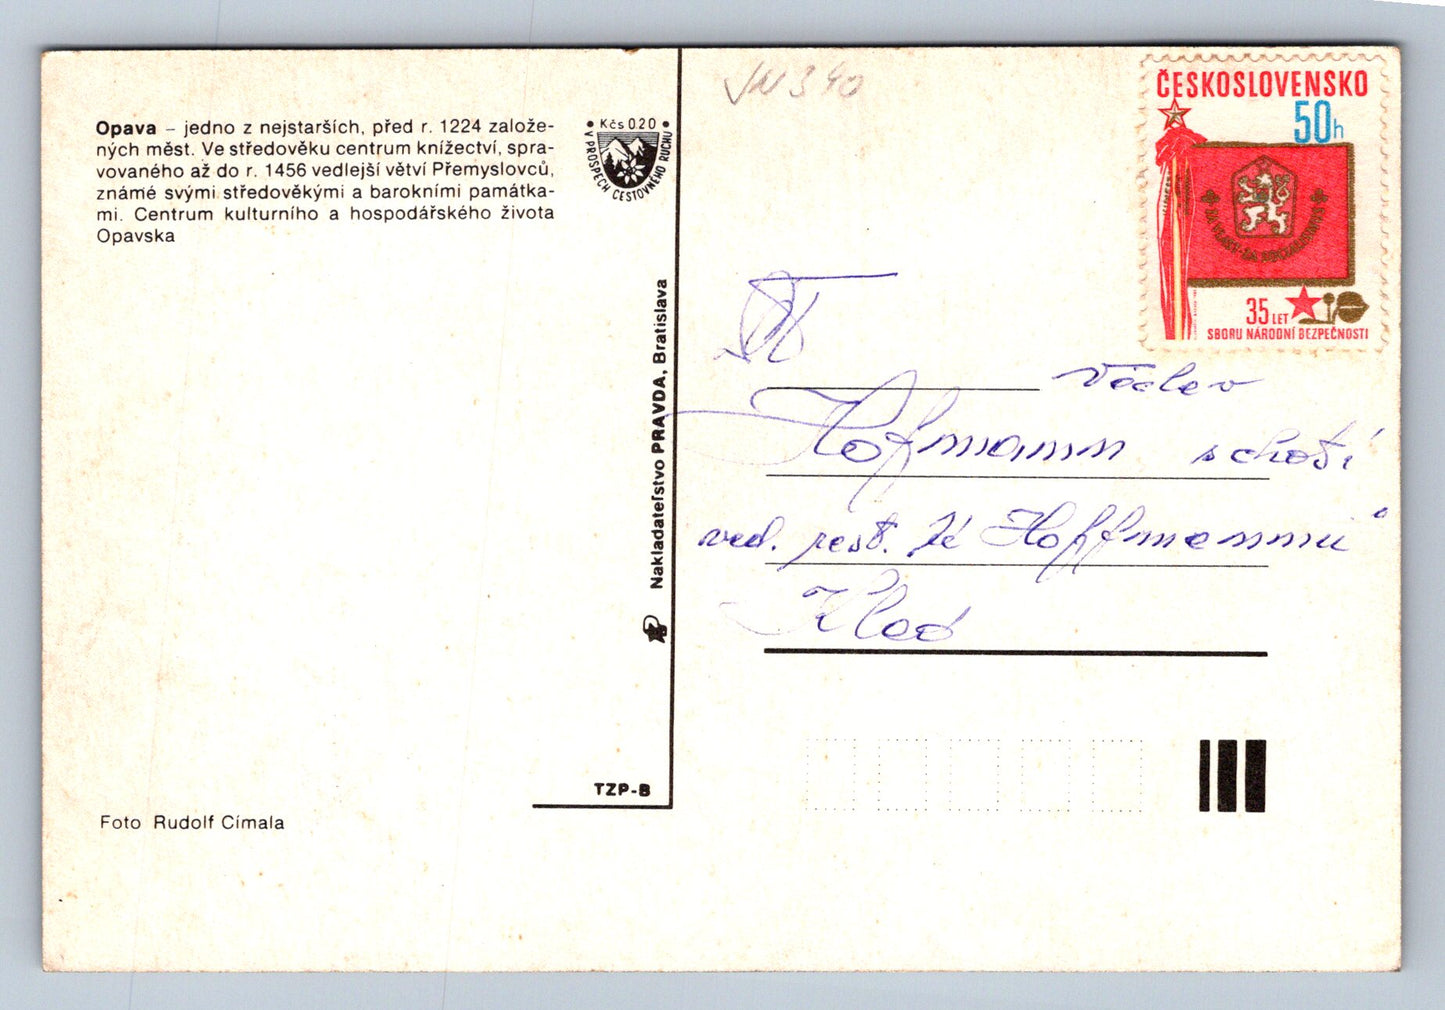 Opava – jedno z nejstarších, před r. 1224 založe-
ných měst. Ve středověku centrum knížectví, spra-
vovaného až do r. 1456 vedlejší větví Přemyslovců,
známé svými středověkými a barokními památka-
mi. Centrum kulturního a hospodářského života
Opavska
Kčs 0.20
V PROSPECH CESTOVNÉHO RUCHU
Nakladateľstvo PRAVDA, Bratislava
TZP-B
Foto Rudolf Címala
ČESKOSLOVENSKO
50h
35 LET
SBORU NÁRODNÍ BEZPEČNOSTI
Václav
Hofmann s chotí
ved. rest. Hoffmannů